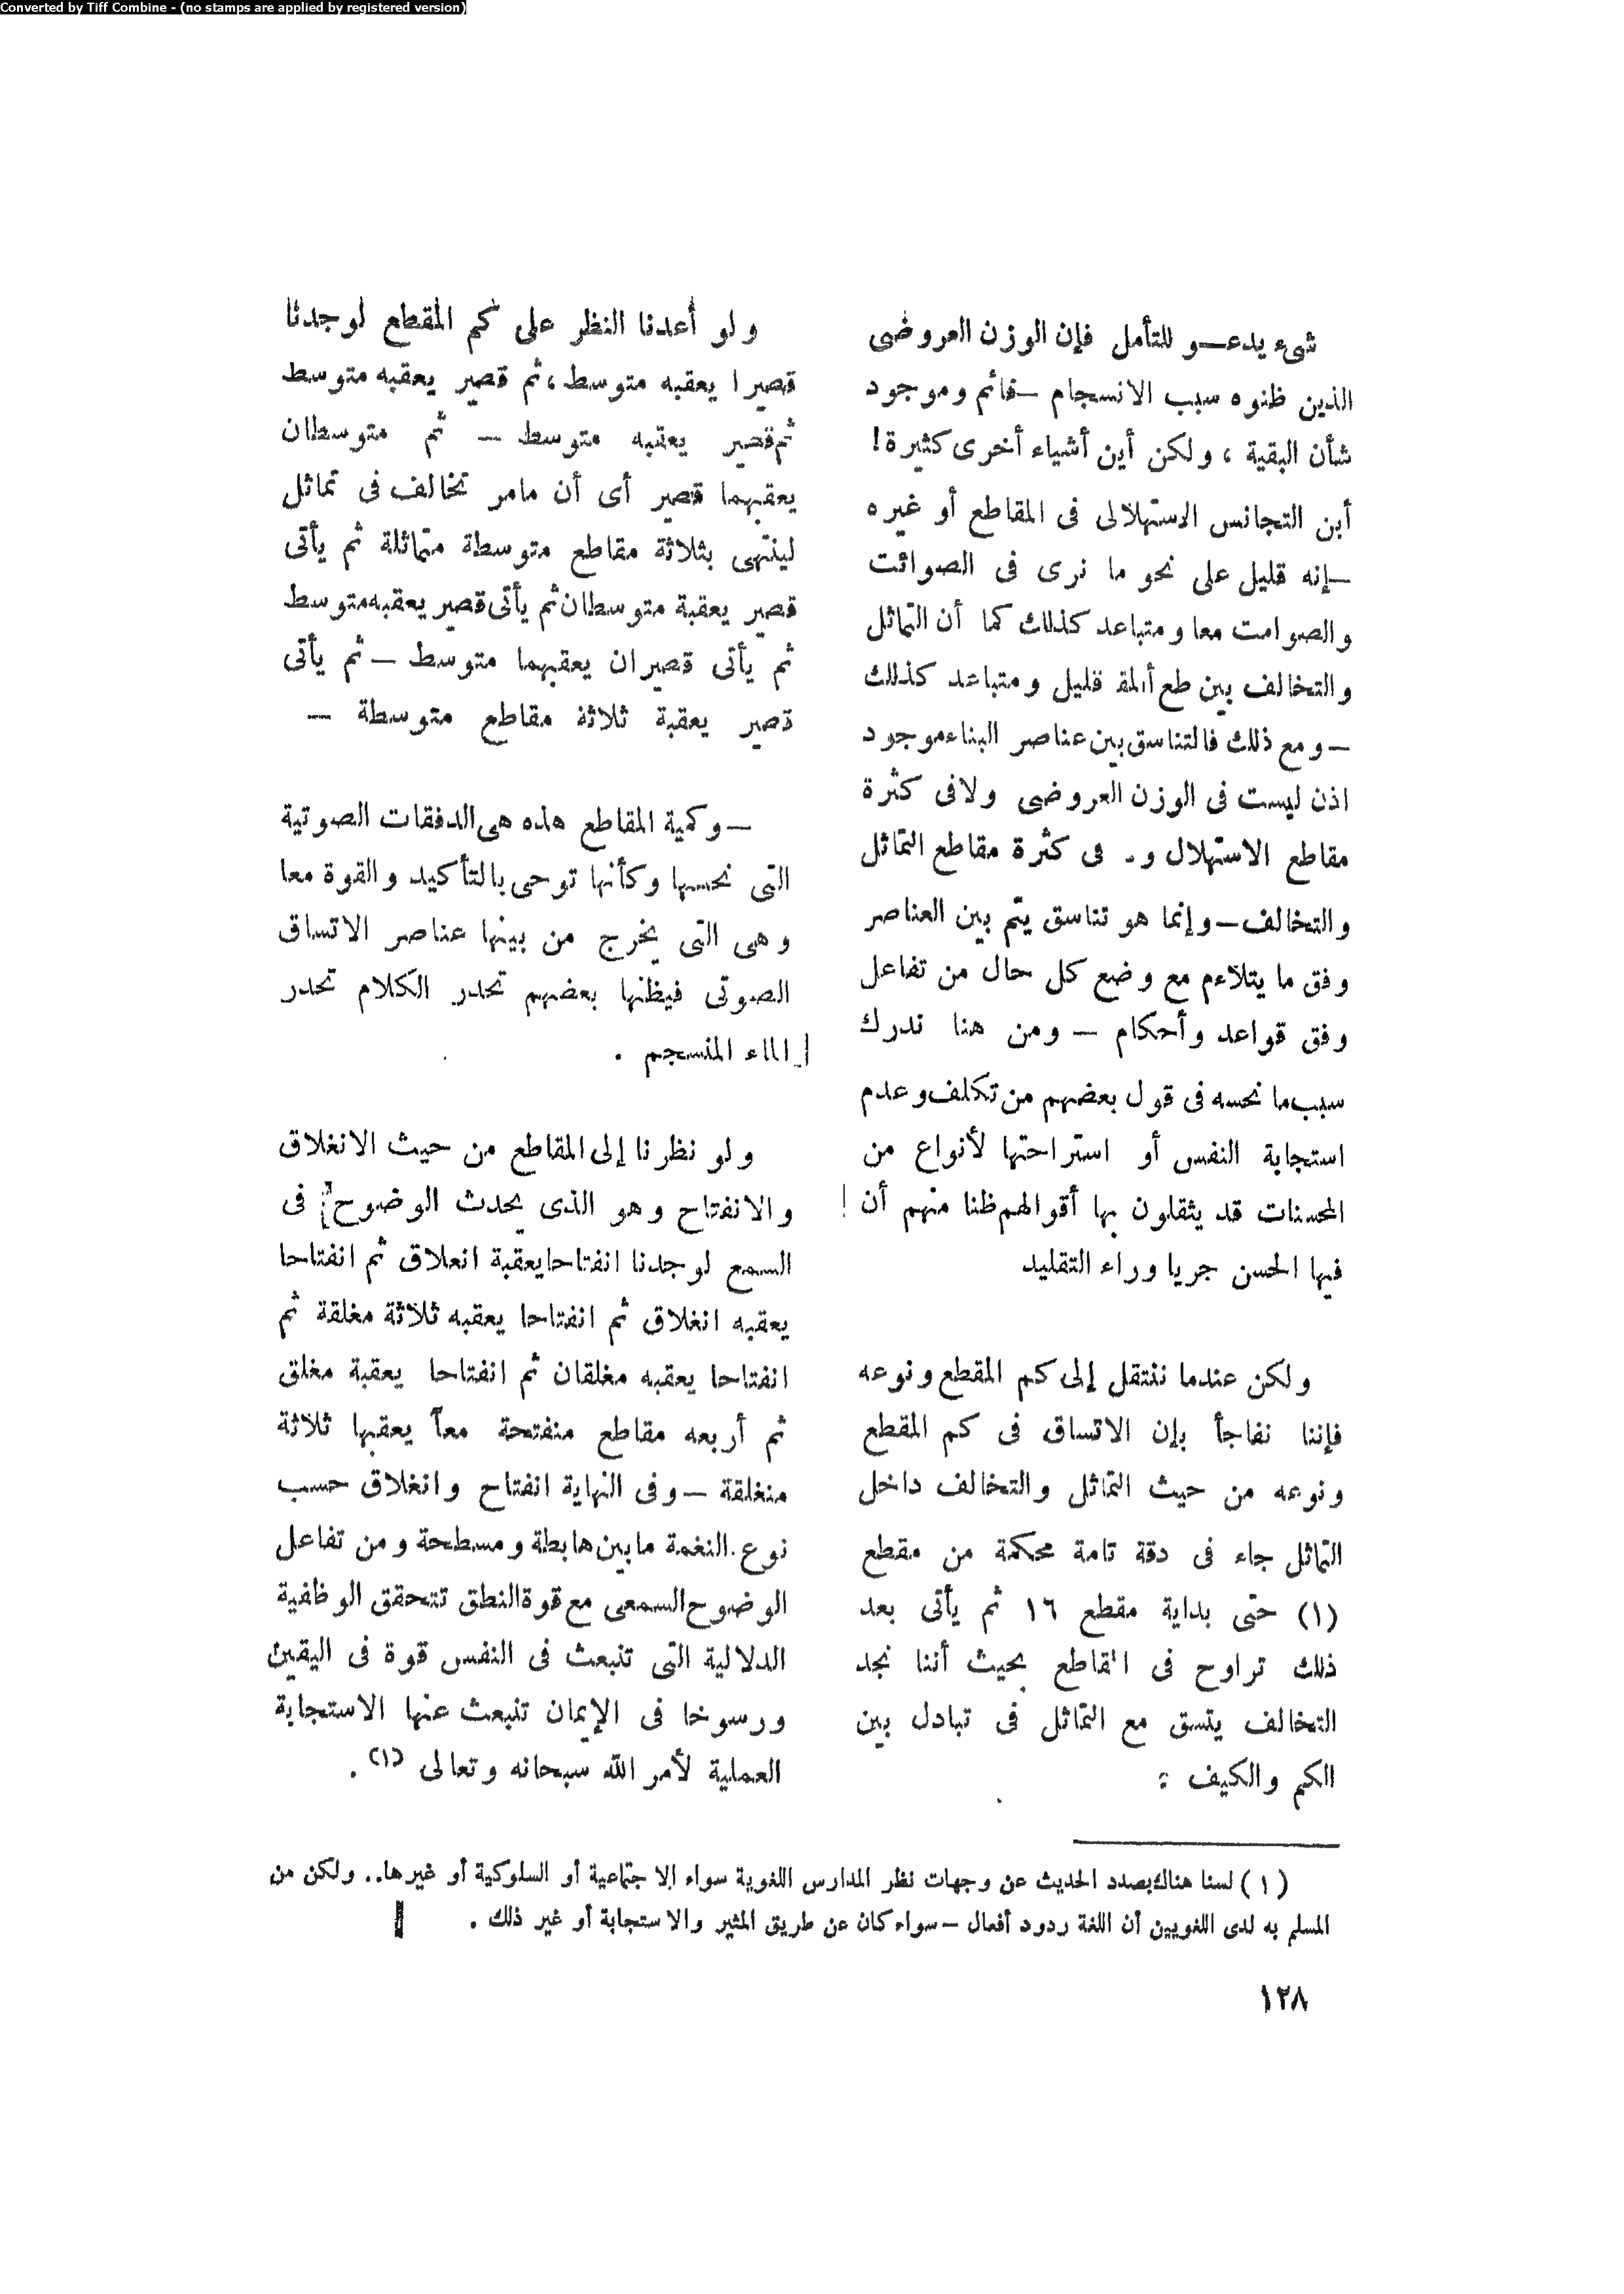 Converted by Tiff Combine - (no stamps are applied by registered version)
شىء يدعو للتأمل فإن الوزن العروضى
الذين ظنوه سبب الانسجام – قائم وموجود
شأن البقية ، ولكن أين أشياء أخرى كثيرة !
أين التجانس الاستهلالى فى المقاطع أو غيره
– إنه قليل على نحو ما نرى فى الصوائت
والصوامت معا ومتباعد كذلك كما أن التماثل
والتخالف بين قليل ومتباعد كذلك
– ومع ذلك فالتناسق بين عناصر البناء موجود
اذن ليست فى الوزن العروضى ولا فى كثرة
مقاطع الاستهلال و فى كثرة مقاطع التماثل
والتخالف – وإنما هو تناسق يتم بين العناصر
وفق ما يتلاءم مع وضع كل حال من تفاعل
وفق قواعد وأحكام – ومن هنا ندرك
سبب ما نحسه فى قول بعضهم من تكلف وعدم
استجابة النفس أو استراحتها لأنواع من
المحسنات قد يثقلون بها أقوالهم ظنا منهم أن
فيها الحسن جريا وراء التقليد
ولكن عندما ننتقل إلى كم المقطع ونوعه
فإننا نفاجأ بإن الاتساق فى كم المقطع
ونوعه من حيث التماثل والتخالف داخل
التماثل جاء فى دقة تامة محكمة من مقطع
(١) حتى بداية مقطع ١٦ ثم يأتى بعد
ذلك تراوح فى المقاطع بحيث أننا نجد
التخالف يتسق مع التماثل فى تبادل بين
الكم والكيف :
ولو أعدنا النظر على كم المقطع لوجدنا
قصيرا يعقبه متوسط ، ثم قصير يعقبه متوسط
ثم قصير يعقبه متوسط – ثم متوسطان
يعقبهما قصير أى أن مامر تخالف فى تماثل
لينتهى بثلاثة مقاطع متوسطة متماثلة ثم يأتى
قصير يعقبة متوسطان ثم يأتى قصير يعقبه متوسط
ثم يأتى قصيران يعقبهما متوسط – ثم يأتى
قصير يعقبة ثلاثة مقاطع متوسطة –
– وكمية المقاطع هذه هى الدفقات الصوتية
التى نحسها وكأنها توحى بالتأكيد والقوة معا
وهى التى يخرج من بينها عناصر الاتساق
الصوتى فيظنها بعضهم تحدر الكلام تحدر
المنسجم .
ولو نظرنا إلى المقاطع من حيث الانغلاق
والانفتاح وهو الذى يحدث الوضوح فى
السمع لوجدنا انفتاحا يعقبة انعلاق ثم انفتاحا
يعقبه انغلاق ثم انفتاحا يعقبه ثلاثة مغلقة ثم
انفتاحا يعقبه مغلقان ثم انفتاحا يعقبة مغلق
ثم أربعه مقاطع منفتحة معاً يعقبها ثلاثة
منغلقة – وفى النهاية انفتاح وانغلاق حسب
نوع . النغمة ما بين هابطة ومسطحة ومن تفاعل
الوضوح السمعى مع قوة النطق تتحقق الوظفية
الدلالية التى تنبعث فى النفس قوة فى اليقين
ورسوخا فى الإيمان تنبعث عنها الاستجابة
العملية لأمر الله سبحانه وتعالى (١) .
(١) لسنا هناك بصدد الحديث عن وجهات نظر المدارس اللغوية سواء الاجتماعية أو السلوكية أو غيرها.. ولكن من
المسلم به لدى اللغويين أن اللغة ردود أفعال – سواء كان عن طريق المثير والاستجابة أو غير ذلك .
١٢٨